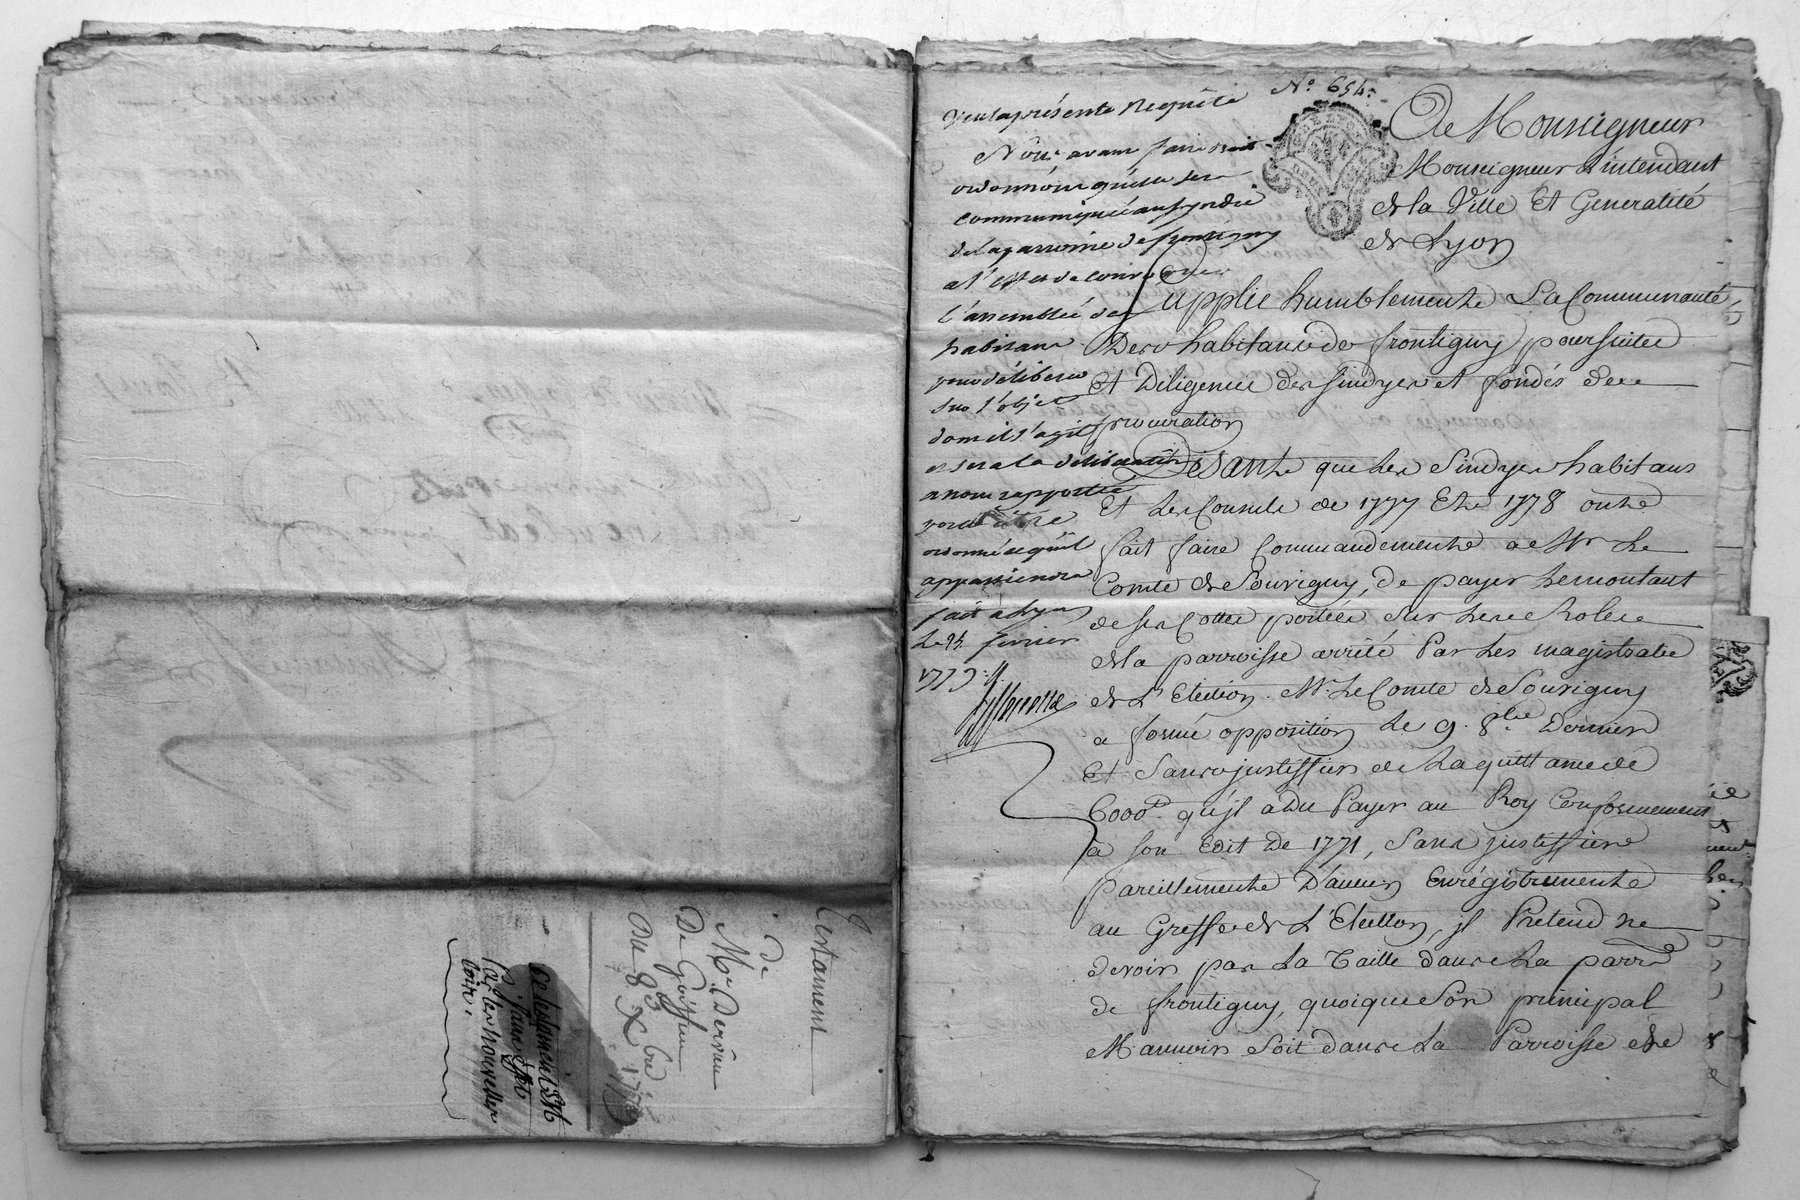 Testament
de
Mr Dervieu
De Goiffieu
Du 8 Xbre 177
Ce testament Est
Sans effet
par les nouvelles
loix.
No. 654.
Vu la présente Requête
Nous avant faire droit
ordonnons qu'elle sera
communiquée au syndic
de la parroisse de frontigny
a l'effet de convoquer
l'assemblée des
habitans
pour déliberer
sur l'objet
dont il s'agit
et sera la délibération
a nous rapportée
pour être
ordonné ce qu'il
appartiendra
fait a Lyon
Le 24 fevrier
1779.
A Monseigneur
Monseigneur L'intendant
de la Ville Et Generalité
de Lyon
Supplie humblement La Communauté
Des habitans de frontigny poursuitte
Et Diligence des sindyc et fondés de
procuration
Disant que Les Sindyc habitans
Et Les Consuls de 1777 Et 1778 ont
fait faire Commandement a Mr Le
Comte de Souvigny, de payer Le montant
de ses Cottes portées sur Les Roles
de la parroisse arrété Par Les magistrats
de L'Election. Mr. Le Comte de Souvigny
a formé opposition Le 9. 8bre Dernier
Et Sans justiffier de La quittance de
6000 qu'jl a du Payer au Roy Conformement
a son Edit De 1771, Sans justiffier
pareillement D'aucun Enrégistrement
au Greffe de L'Election, jl Pretend ne
devoir pas La Taille dans La parrse
de frontigny, quoique Son principal
Manoir Soit dans La Parroisse de